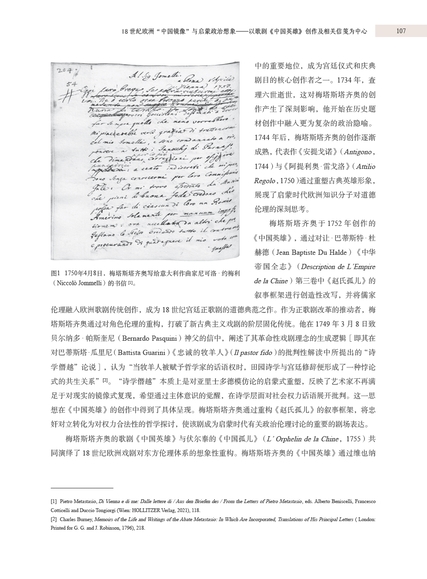 18 世纪欧洲“中国镜像”与启蒙政治想象——以歌剧《中国英雄》创作及相关信笺为中心
107
图1 1750年4月8日，梅塔斯塔齐奥写给意大利作曲家尼可洛·约梅利
（Niccolò Jommelli）的书信 [1]。
中的重要地位，成为宫廷仪式和庆典
剧目的核心创作者之一。1734 年，查
理六世逝世，这对梅塔斯塔齐奥的创
作产生了深刻影响，他开始在历史题
材创作中融入更为复杂的政治隐喻。
1744 年后，梅塔斯塔齐奥的创作逐渐
成熟，代表作《安提戈诺》（Antigono，
1744）与《阿提利奥·雷戈洛》（Attilio
Regolo，1750）通过重塑古典英雄形象，
展现了启蒙时代欧洲知识分子对道德
伦理的深刻思考。
梅塔斯塔齐奥于 1752 年创作的
《中国英雄》，通过对让·巴蒂斯特·杜
赫德（Jean Baptiste Du Halde）《中华
帝国全志》（Description de L'Empire
de la Chine）第三卷中《赵氏孤儿》的
叙事框架进行创造性改写，并将儒家
伦理融入欧洲歌剧传统创作，成为 18 世纪宫廷正歌剧的道德典范之作。作为正歌剧改革的推动者，梅
塔斯塔齐奥通过对角色伦理的重构，打破了新古典主义戏剧的阶层固化传统。他在 1749 年 3 月 8 日致
贝尔纳多·帕斯奎尼（Bernardo Pasquini）神父的信中，阐述了其革命性戏剧理念的生成逻辑［即其在
对巴蒂斯塔·瓜里尼（Battista Guarini）《忠诚的牧羊人》（Il pastor fido）的批判性解读中所提出的“诗
学僭越”论说］，认为“当牧羊人被赋予哲学家的话语权时，田园诗学与宫廷修辞便形成了一种悖论
式的共生关系”[2]。“诗学僭越”本质上是对亚里士多德模仿论的启蒙式重塑，反映了艺术家不再满
足于对现实的镜像式复现，希望通过主体意识的觉醒，在诗学层面对社会权力话语展开批判。这一思
想在《中国英雄》的创作中得到了具体呈现。梅塔斯塔齐奥通过重构《赵氏孤儿》的叙事框架，将忠
奸对立转化为对权力合法性的哲学探讨，使该剧成为启蒙时代有关政治伦理讨论的重要的剧场表达。
梅塔斯塔齐奥的歌剧《中国英雄》与伏尔泰的《中国孤儿》（L' Orphelin de la Chine，1755）共
同演绎了 18 世纪欧洲戏剧对东方伦理体系的想象性重构。梅塔斯塔齐奥的《中国英雄》通过维也纳
[1] Pietro Metastasio, Di Vienna e di me: Dalle lettere di / Aus den Briefen des / From the Letters of Pietro Metastasio, eds. Alberto Beniscelli, Francesco
Cotticelli and Duccio Tongiorgi (Wien: HOLLITZER Verlag, 2021), 118.
[2] Charles Burney, Memoirs of the Life and Writings of the Abate Metastasio: In Which Are Incorporated, Translations of His Principal Letters ( London:
Printed for G. G. and J. Robinson, 1796), 218.